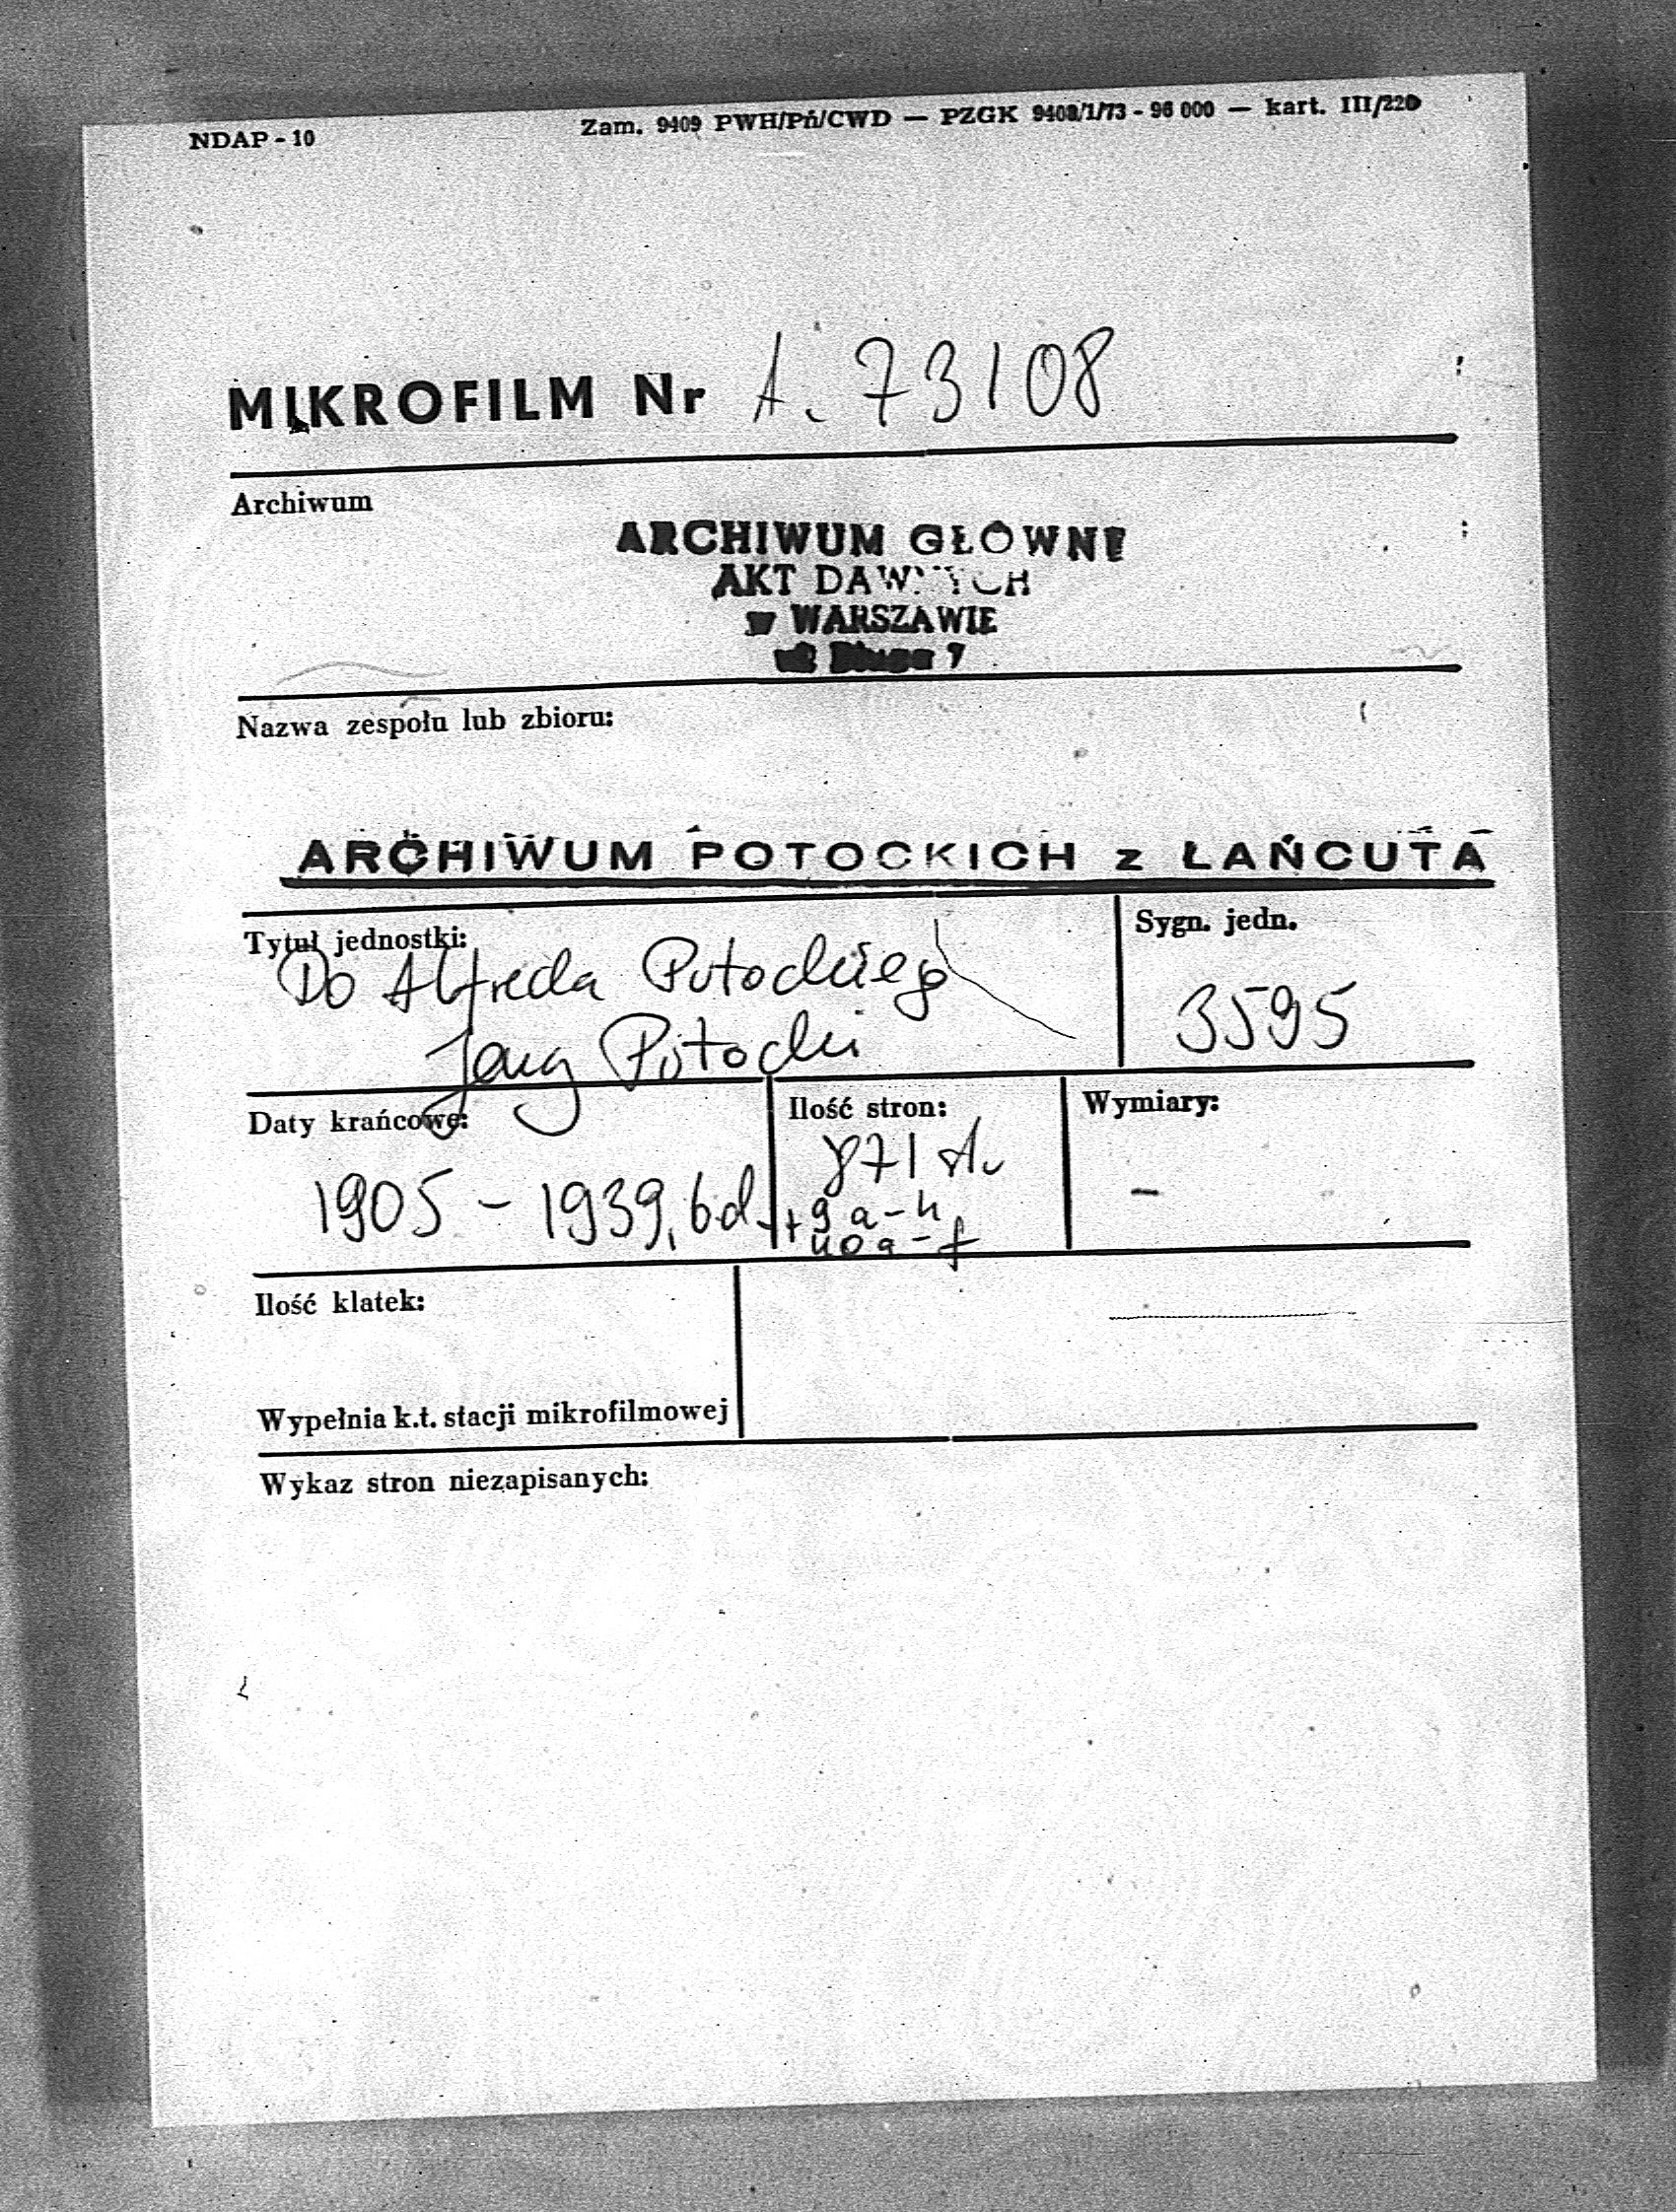 NDAP - 10
Zam. 9409 PWH/Pń/CWD — PZGK 9408/1/73 - 96 000 — kart. III/220
MIKROFILM Nr A. 73108
Archiwum
ARCHIWUM GŁÓWNE
AKT DAWNYCH
w WARSZAWIE
ul Długa 7
Nazwa zespołu lub zbioru:
ARCHIWUM POTOCKICH z ŁAŃCUTA
Tytuł jednostki:
Do Alfreda Potockiego
Jerzy Potocki
Sygn. jedn.
3595
Daty krańcowe:
1905 - 1939, b.d.
Ilość stron:
871 st.
+ 9 a - h
40 a - f
Wymiary:
-
Ilość klatek:
Wypełnia k.t. stacji mikrofilmowej
Wykaz stron niezapisanych: